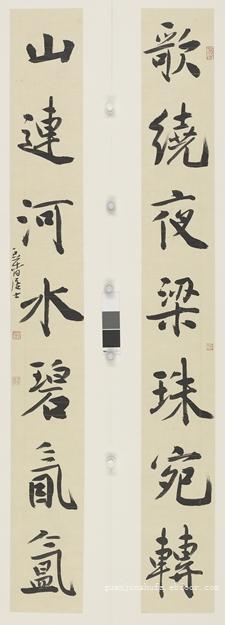 歌繞夜梁珠宛轉
山連河水碧氤氳